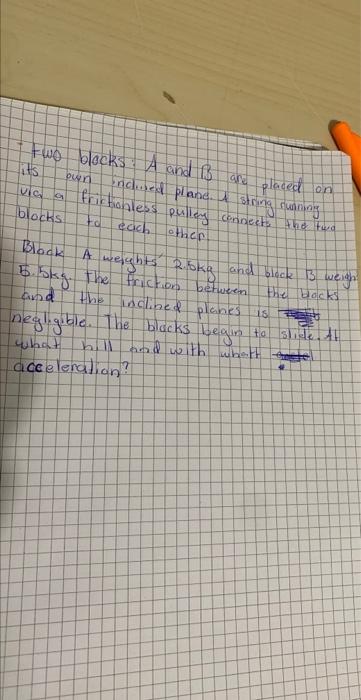 two blocks: A and B are placed on
its own inclined plane. A string running
via a frictionless pulley connects the two
blocks to each other.
Block A weights 2.5kg and block B weigh
5.5kg. The friction between the blocks
and the inclined planes is
negligible. The blocks begin to slide. At
what hill and with whatt
acceleration?